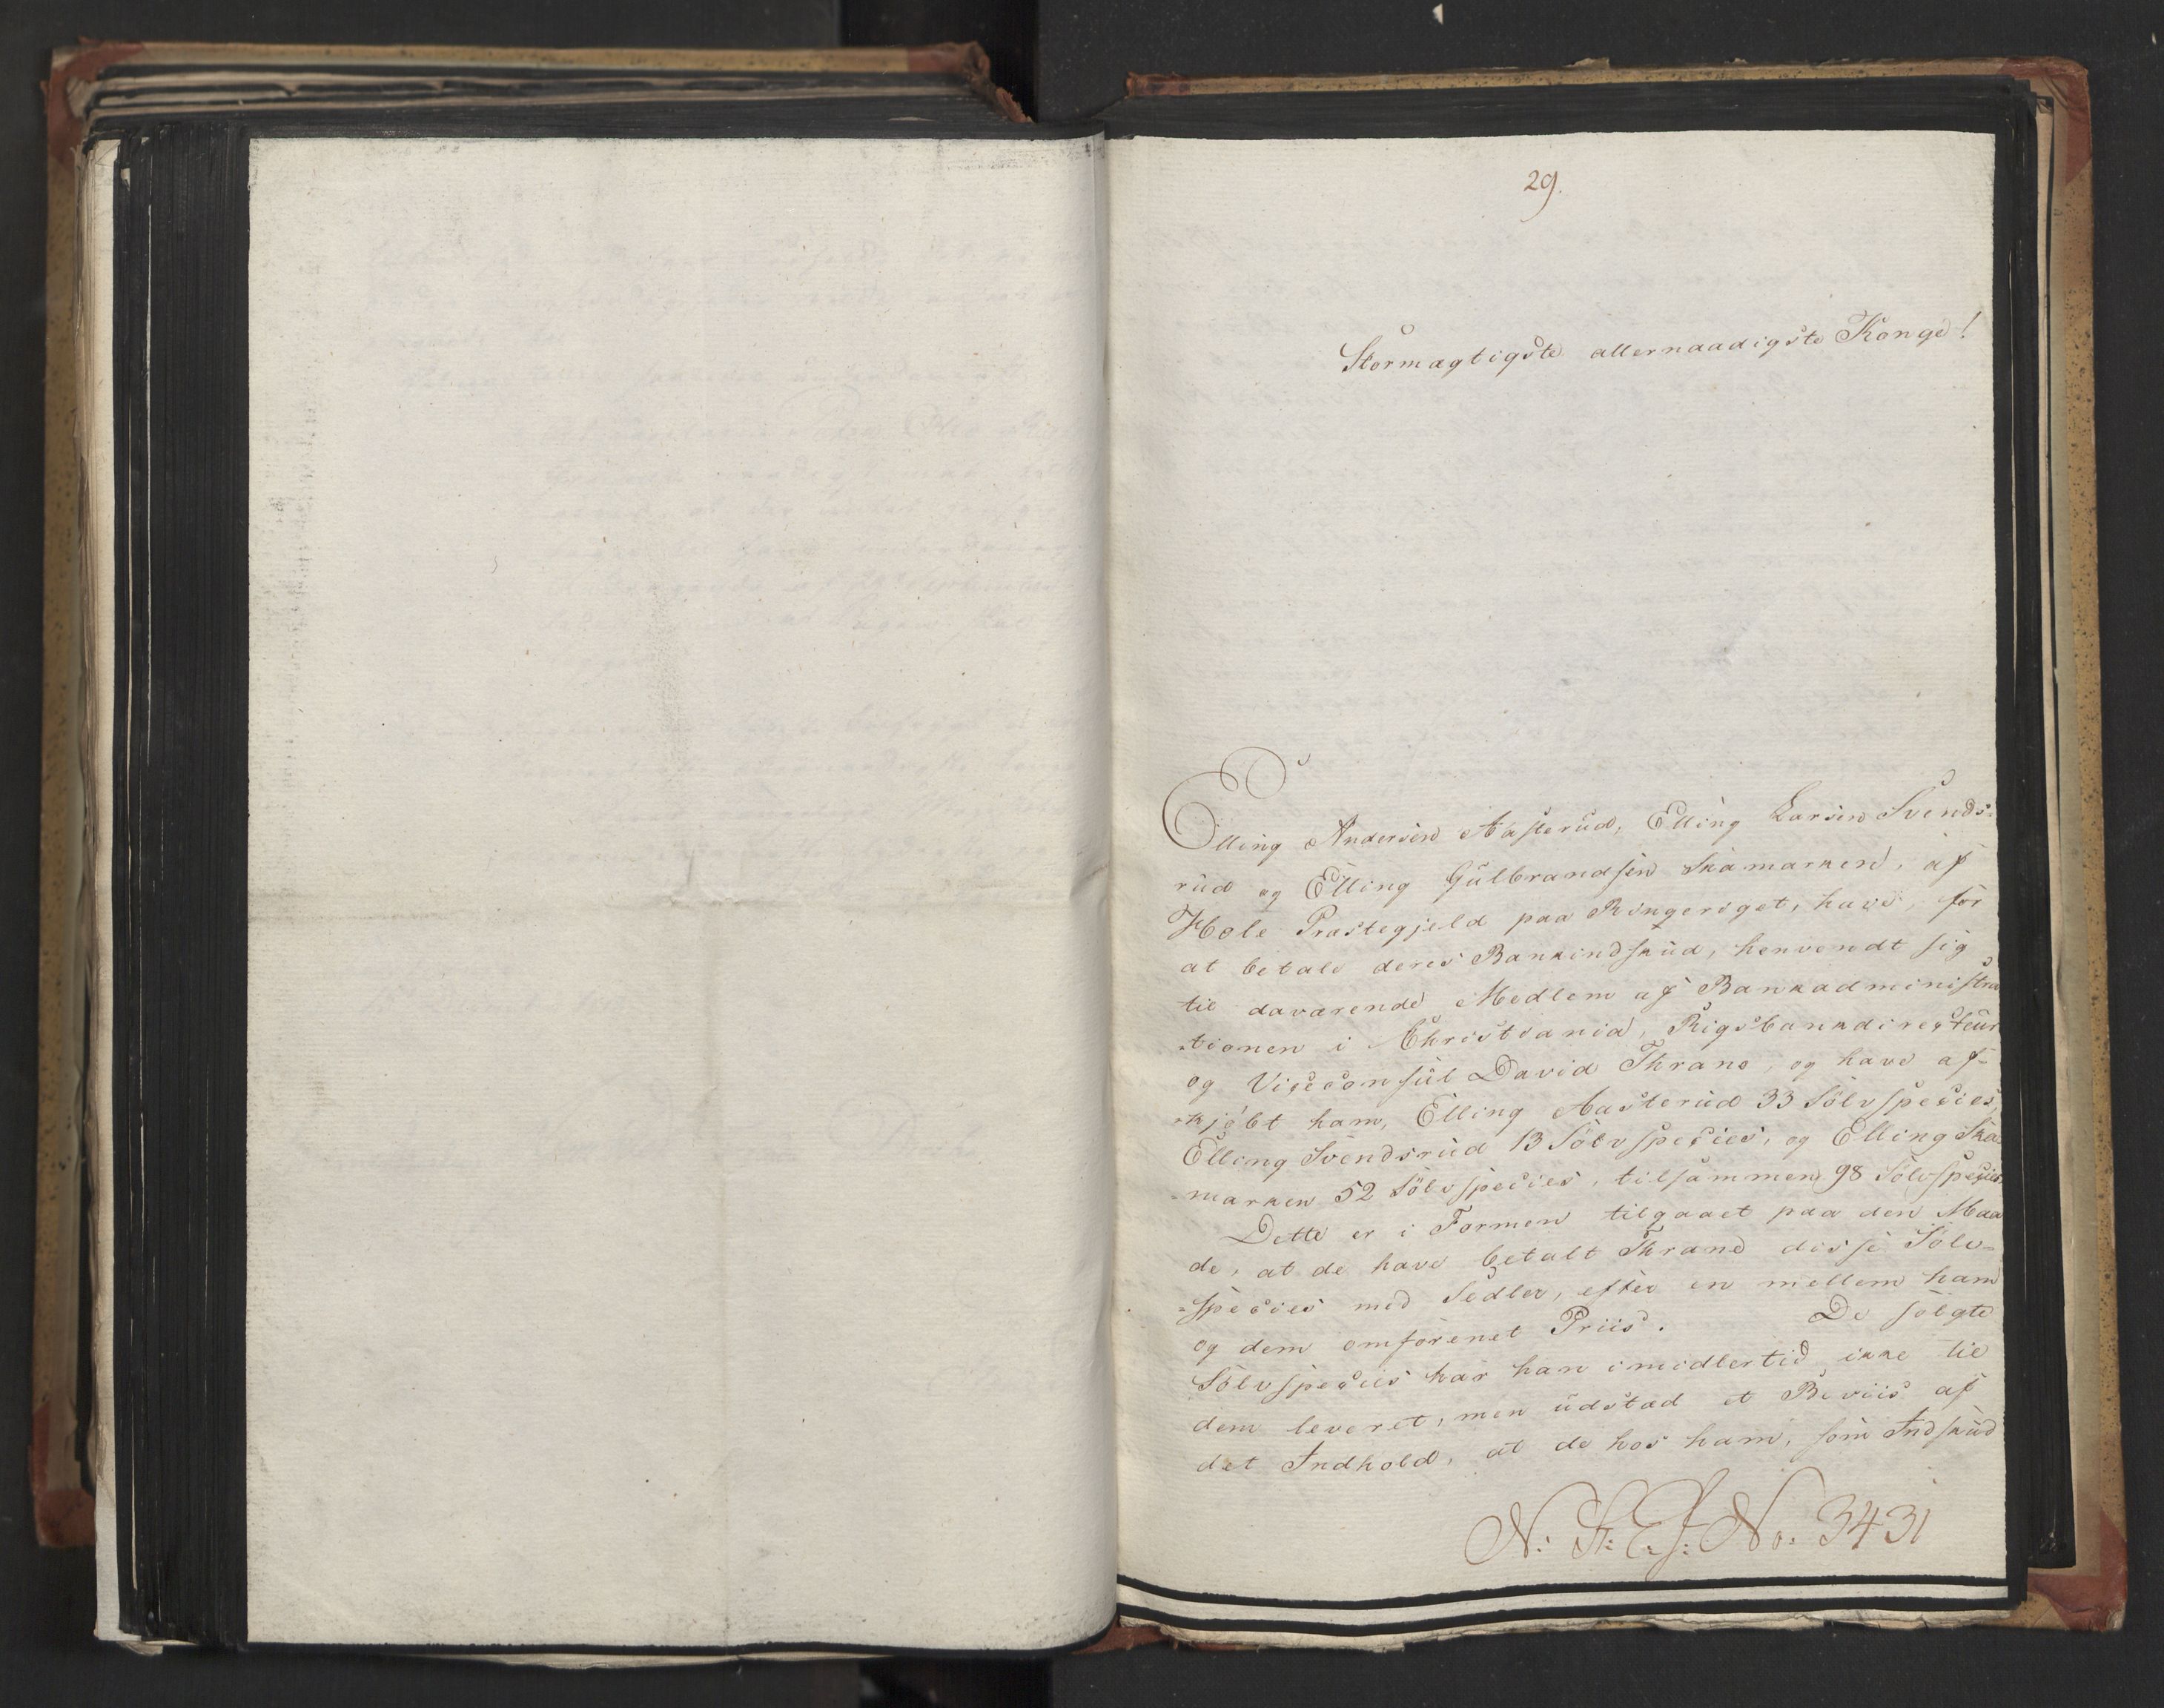 29.
Stormægtigste allernaadigste Konge!
Elling Andersen Aasterud, Elling Larsen Svends-
rud og Elling Gulbrandsen Skamarken, af
Hole Præstegjeld paa Ringeriget, have, for
at betale deres Bankindskud, henvendt sig
til daværende Medlem af Bankadministra
-tionen i Christiania, Rigsbankdirecteur
og Viceconsul David Thrane, og have af-
-kjøbt ham, Elling Aasterud 33 Sölvspecies,
Elling Svendsrud 13 Sölvspecies, og Elling Ska-
-marken 52 Sölvspecies, tilsammen 98 Sölvspecies
Dette er i Formen tilgaaet paa den Maa
de, at de have betalt Thrane disse Sölv-
-species med Sedler, efter en mellem ham
og dem omforenet Priis. De solgte
Sölvspecies har han imidlertid ikke til
dem leveret, men udstæd et Beviis af
det Indhold, at de hos ham, som Indskud
N: St: E: J: No: 3431